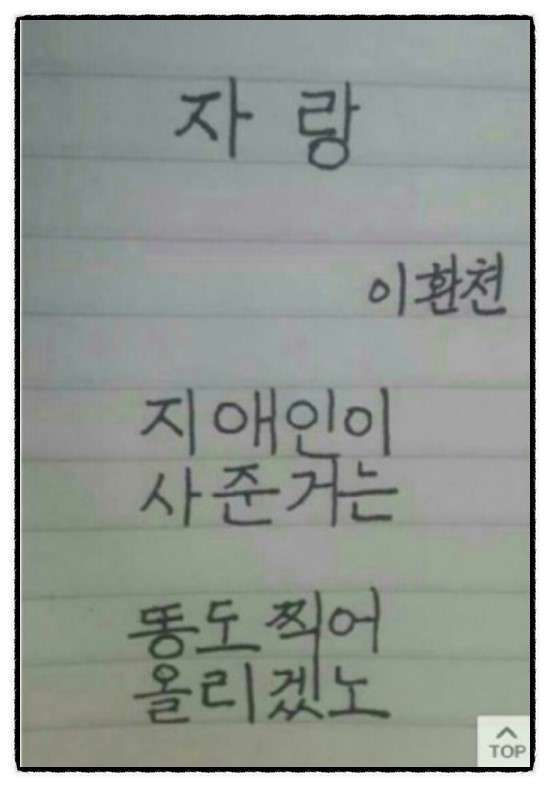 자랑
이환천
지애인이
사준거는
똥도찍어
올리겠노
TOP